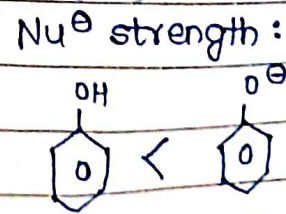 Nu⊖ strength :
OH < O⊖